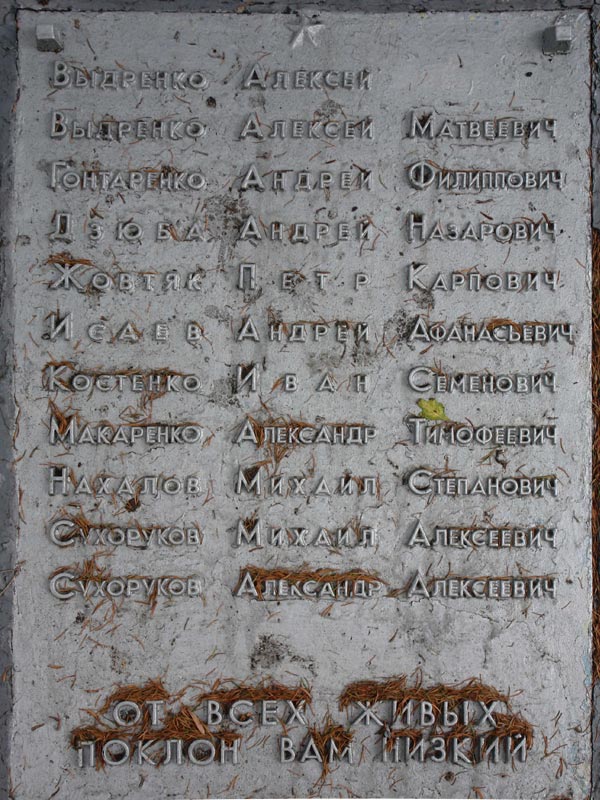 Выдренко Алексей
Выдренко Алексей Матвеевич
Гонтаренко Андрей Филиппович
Дзюба Андрей Назарович
Жовтяк Петр Карпович
Исаев Андрей Афанасьевич
Костенко Иван Семенович
Макаренко Александр Тимофеевич
Нахалов Михаил Степанович
Сухоруков Михаил Алексеевич
Сухоруков Александр Алексеевич
ОТ ВСЕХ ЖИВЫХ
ПОКЛОН ВАМ НИЗКИЙ